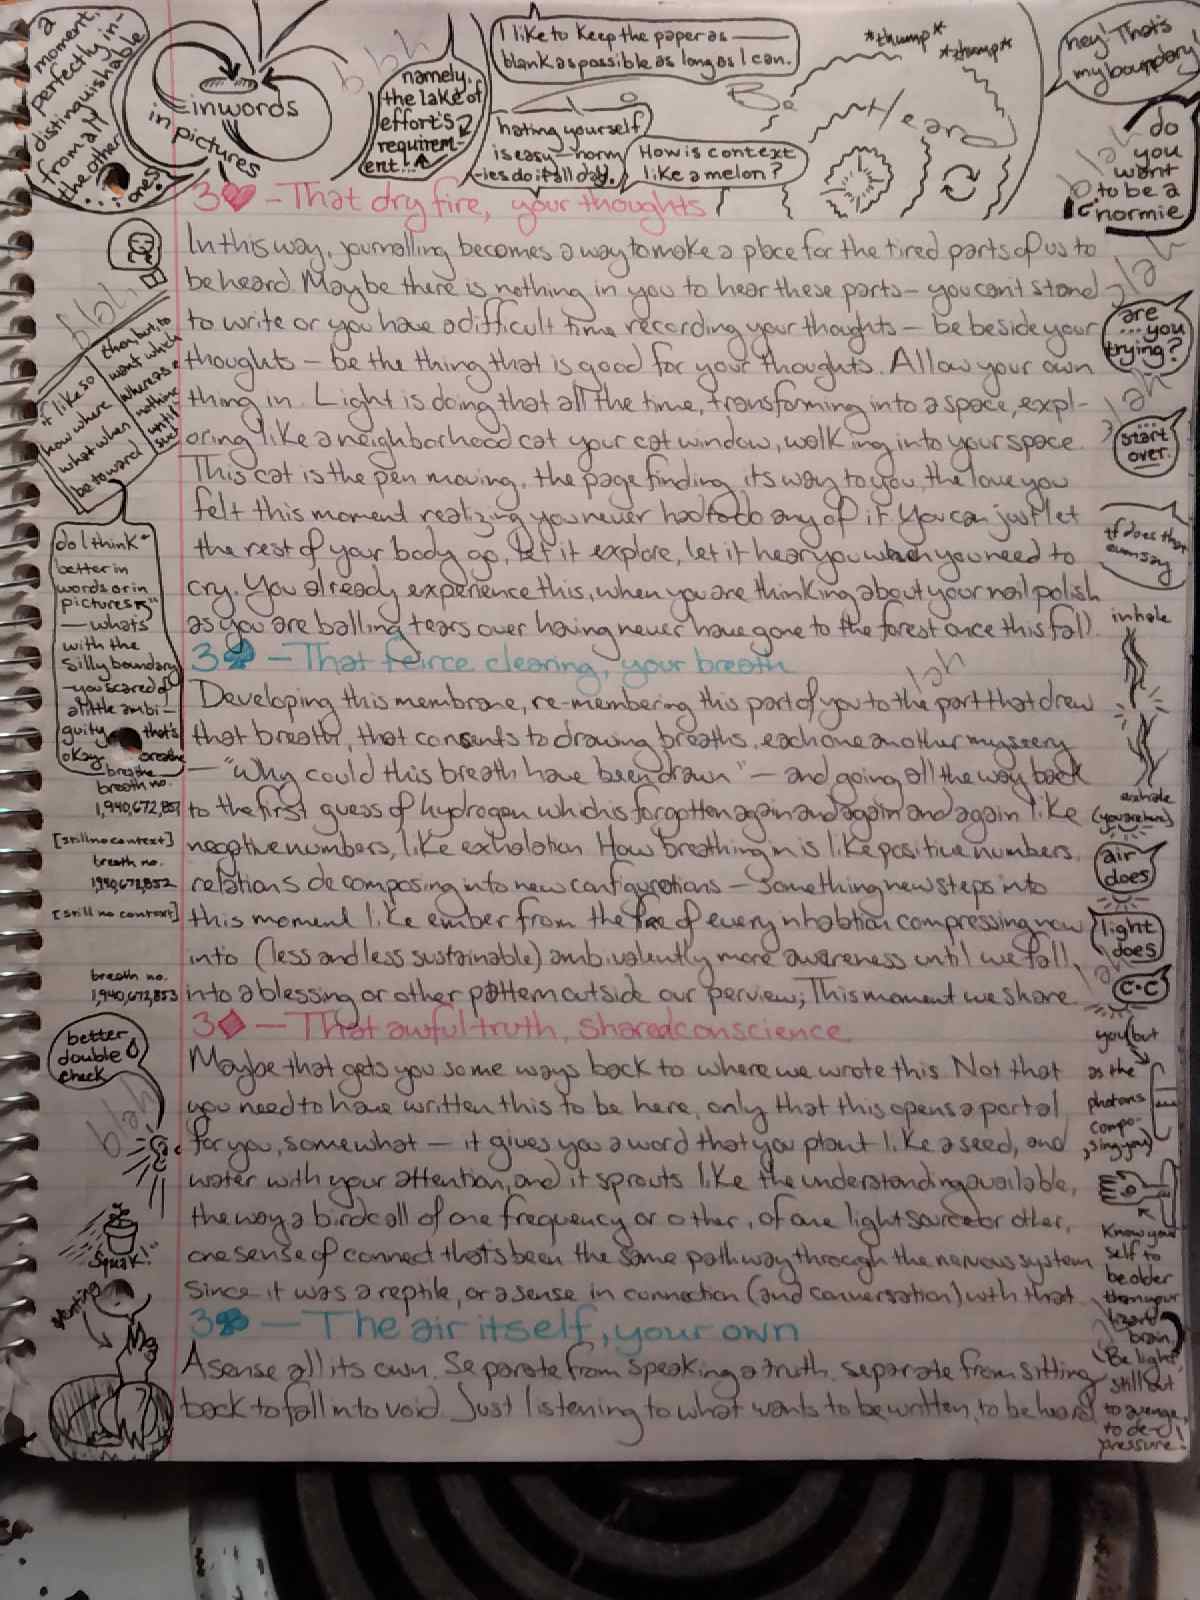 a
moment,
perfectly in-
distinguishable
from all
the other
... ones!
inwords
in pictures
blah
namely,
the lake of
effort's
requirem-
ent!
I like to keep the paper as ——
blank as possible as long as I can.
hating yourself
is easy — norm
-ies do it all day.
How is context
like a melon?
Be
*thump*
*thump*
Heard
hey! That's
my boundary!
blah
do
you
want
to be a
normie
3♥ – That dry fire, your thoughts
In this way, journalling becomes a way to make a place for the tired parts of us to
be heard. Maybe there is nothing in you to hear these parts – you can't stand
to write or you have a difficult time recording your thoughts – be beside your
thoughts – be the thing that is good for your thoughts. Allow your own
thing in. Light is doing that all the time, transforming into a space, expl-
oring like a neighborhood cat your cat window, walking into your space.
This cat is the pen moving, the page finding its way to you, the love you
felt this moment realizing you never had to do any of it. You can just let
the rest of your body go, let it explore, let it hear you when you need to
cry. You already experience this, when you are thinking about your nail polish
as you are balling tears over having never have gone to the forest once this fall.
3♠ – That feirce clearing, your breath
Developing this membrane, re-membering this part of you to the part that drew
that breath, that consents to drawing breaths, each one another mysery
– "Why could this breath have been drawn" – and going all the way back
to the first guess of hydrogen which is forgotten again and again and again like
negative numbers, like exhalation. How breathing in is like positive numbers,
relations decomposing into new configurations – something new steps into
this moment like ember from the fire of every inhabtion compressing now
into (less and less sustainable) ambivalently more awareness until we fall
into a blessing or other pattern outside our perview; This moment we share.
3♦ – That awful truth, shared conscience
Maybe that gets you some ways back to where we wrote this. Not that
you need to have written this to be here, only that this opens a portal
for you, somewhat – it gives you a word that you plant like a seed, and
water with your attention, and it sprouts like the understanding available,
the way a birdcall of one frequency or other, of one light source or other,
one sense of connect that's been the same pathway through the nervous system
since it was a reptile, or a sense in connection (and conversation) with that
3♣ – The air itself, your own
A sense all its own. Separate from speaking a truth, separate from sitting
back to fall into void. Just listening to what wants to be written, to be heard
blah
tho, but, to
want which
whereas
nothing
until
such
like so
how where
what when
be toward
do I think
better in
words or in
pictures
— whats
with the
silly boundary
– you scared of
a little ambi–
guity that's
okay. breathe
breathe
breath no.
1,940,672,851
[still no context]
breath no.
1,940,672,852
[still no context]
breath no.
1,940,672,853
better
double
check
blah
Squeak!"
Venting
blah
are
... you
trying?
blah
...start
over.
tf does that
even say
inhale
blah
exhale
(you are here)
air
does
light
does
blah
C•C
you (but
as the
photons
compo-
sing you)
Know your
self to
be older
than your
lizard
brain.
Be light,
still out
to avenge,
to de-
pressure!